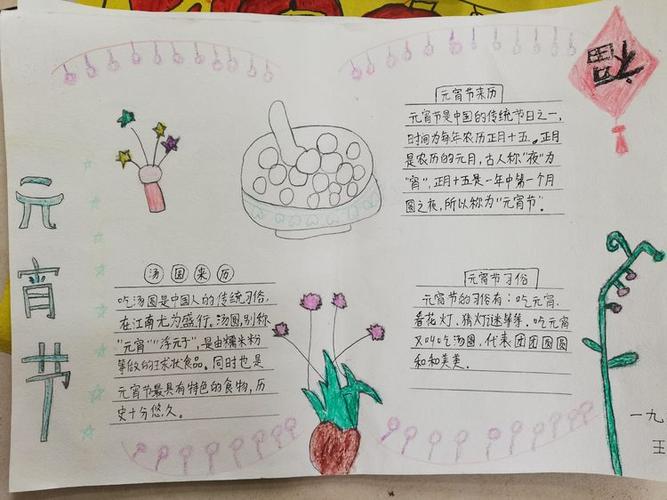 元宵节
福
元宵节来历
元宵节是中国的传统节日之一,
时间为每年农历正月十五。正月
是农历的元月,古人称"夜"为
"宵",正月十五是一年中第一个月
圆之夜,所以称为"元宵节"。
汤圆来历
吃汤圆是中国人的传统习俗,
在江南尤为盛行。汤圆,别称
"元宵""浮元子",是由糯米粉
等做的球状食品。同时也是
元宵节最具有特色的食物,历
史十分悠久。
元宵节习俗
元宵节的习俗有:吃元宵、
看花灯,猜灯谜等等。吃元宵
又叫吃汤圆,代表团团圆圆
和和美美。
一九
王